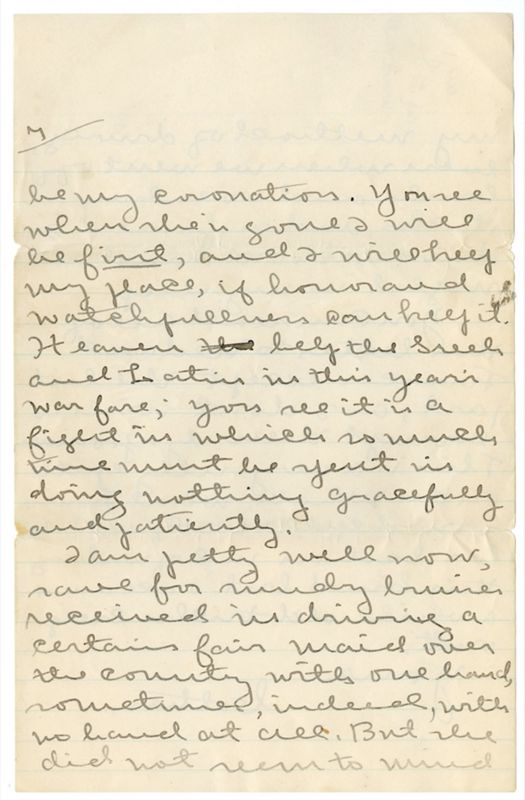 7
be my coronation. You see
when she is gone I will
be first, and I will keep
my place, if honor and
watchfullness can keep it.
Heaven help the Greek
and Latin in this year's
war fare; you see it is a
fight in which so much
time must be spent in
doing nothing gracefully
and patiently.
I am petty well now,
save for sundry bruises
received in driving a
certain fair maid over
the country with one hand,
sometimes, indeed, with
no hand at all. But she
did not seem to mind